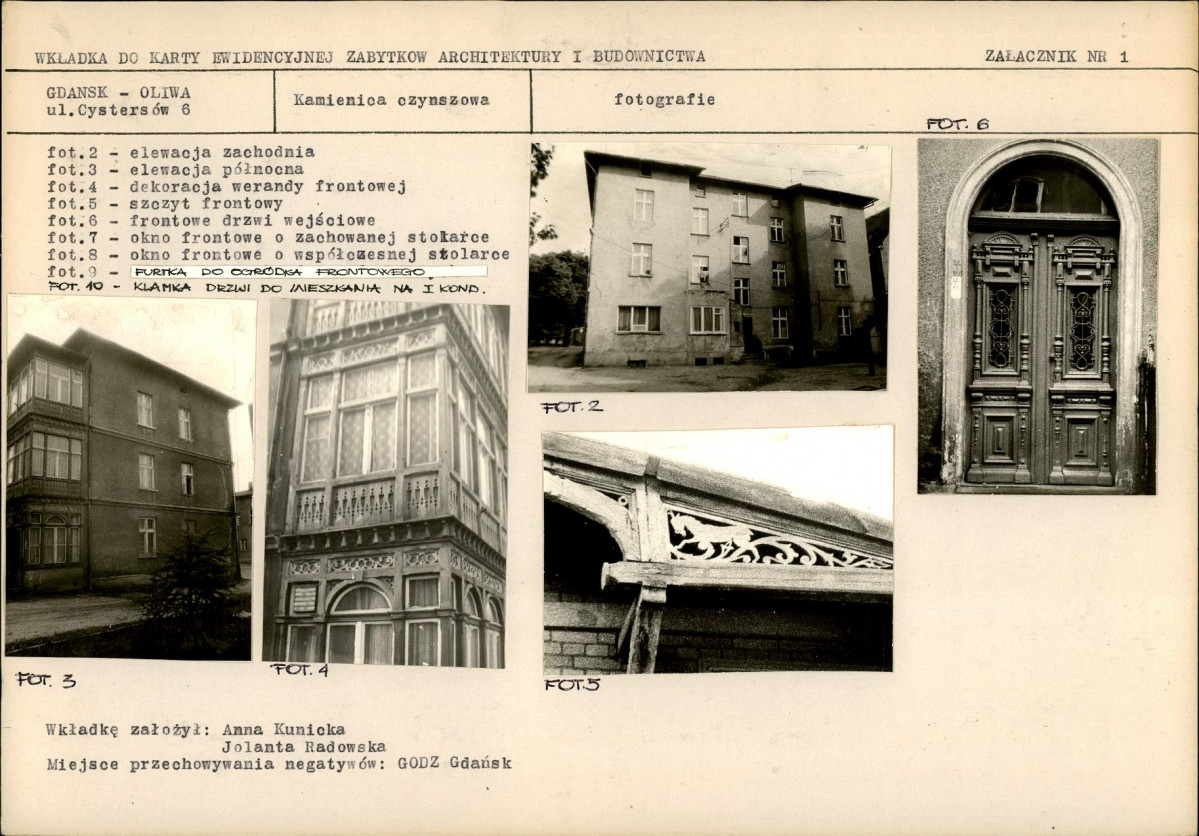 WKŁADKA DO KARTY EWIDENCYJNEJ ZABYTKOW ARCHITEKTURY I BUDOWNICTWA
ZAŁACZNIK NR 1
GDANSK - OLIWA
ul.Cystersów 6
Kamienica czynszowa
fotografie
fot.2 - elewacja zachodnia
fot.3 - elewacja północna
fot.4 - dekoracja werandy frontowej
fot.5 - szczyt frontowy
fot.6 - frontowe drzwi wejściowe
fot.7 - okno frontowe o zachowanej stolarce
fot.8 - okno frontowe o współczesnej stolarce
fot.9 - FURTKA DO OGRÓDKA FRONTOWEGO
FOT. 10 - KLAMKA DRZWI DO MIESZKANIA NA I KOND.
FOT. 6
FOT. 2
FOT. 3
FOT. 4
FOT.5
Wkładkę założył: Anna Kunicka
Jolanta Radowska
Miejsce przechowywania negatywów: GODZ Gdańsk